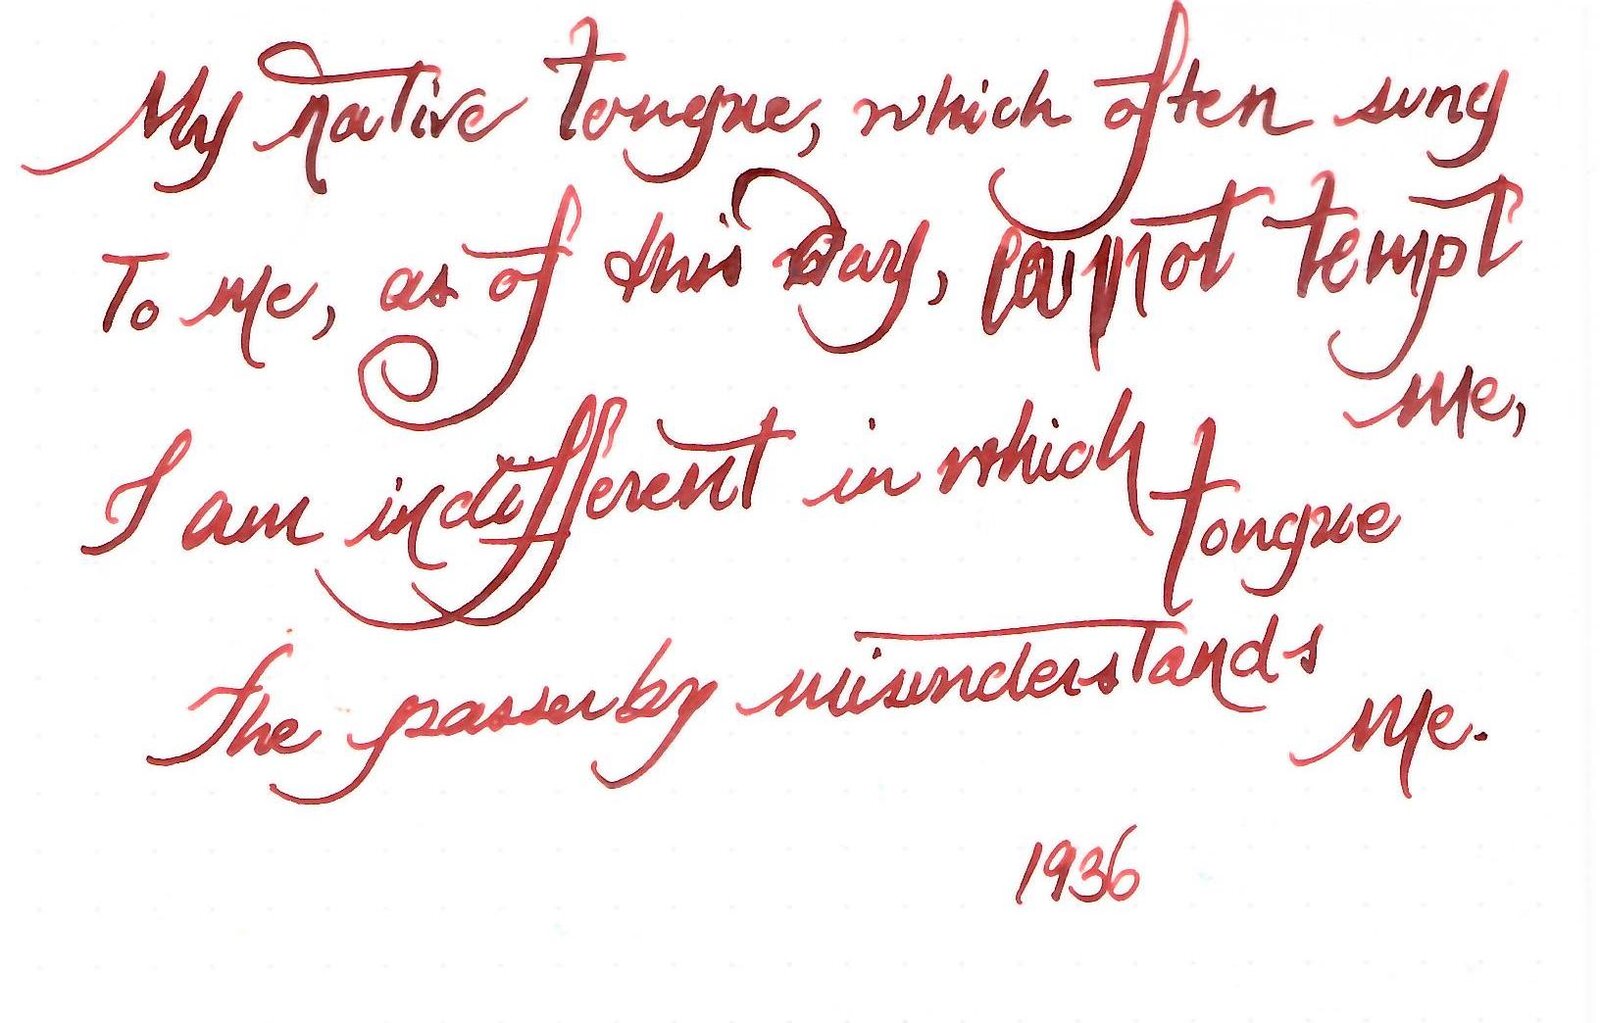 My native tongue, which often sung
To me, as of this day, cannot tempt
me,
I am indifferent in which tongue
The passerby misunderstands
me.
1936